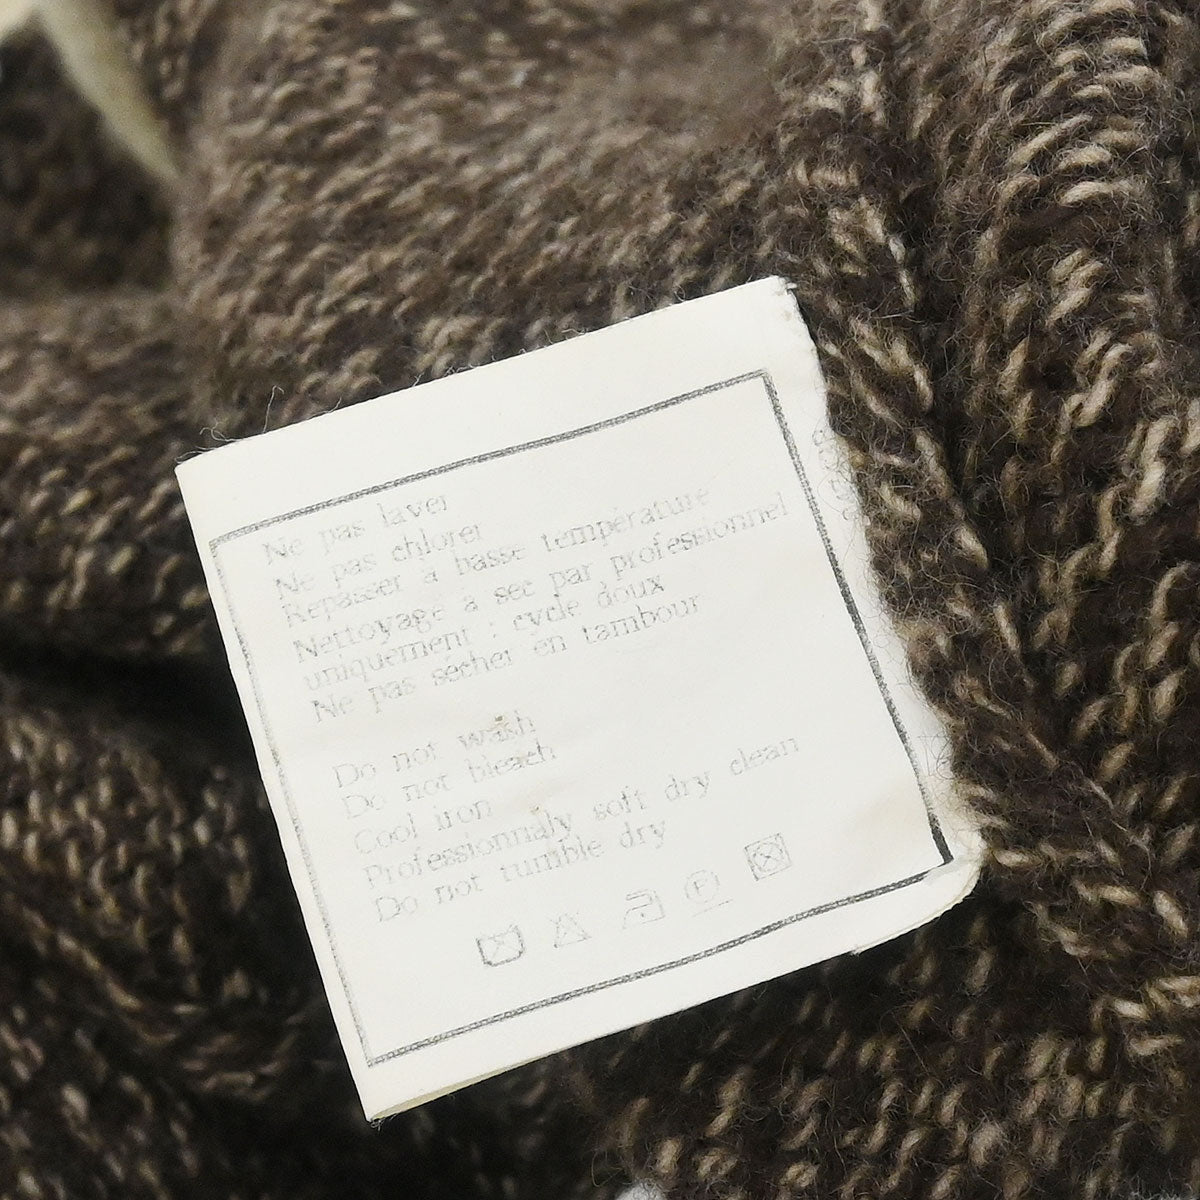 Ne pas laver
Ne pas chlorer
Repasser à basse température
Nettoyage à sec par professionnel
uniquement : cycle doux
Ne pas sécher en tambour
Do not wash
Do not bleach
Cool iron
Professionnaly soft dry clean
Do not tumble dry
F